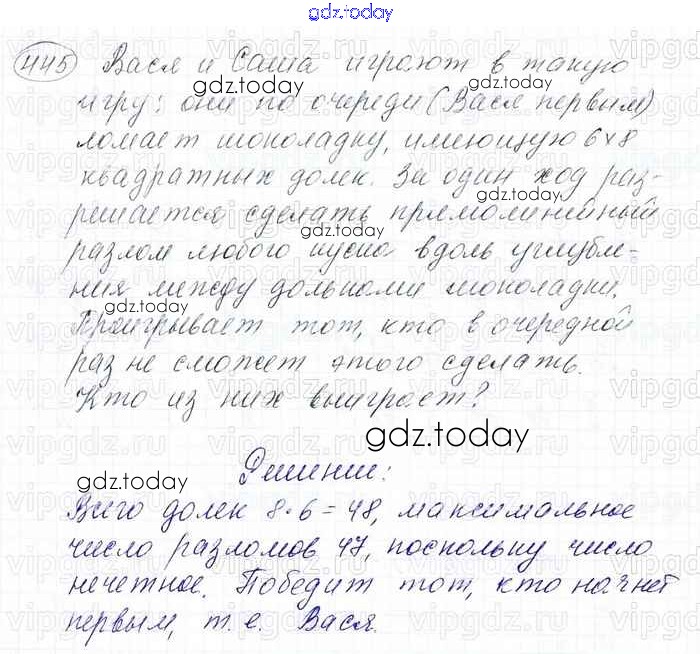 gdz.today
445 Вася и Саша играют в такую
игру: они по очереди (Вася первым)
gdz.today
ломает шоколадку, имеющую 6×8
квадратных долек. За один ход раз-
gdz.today
решается сделать прямолинейный
разлом любого куска вдоль углубле-
gdz.today
ния между дольками шоколадки.
gdz.today
Проигрывает тот, кто в очередной
раз не сможет этого сделать.
Кто из них выиграет?
gdz.today
Решение:
gdz.today
Всего долек 8·6=48, максимальное
число разломов 47, поскольку число
нечетное. Победит тот, кто начнет
первым, т.е. Вася.